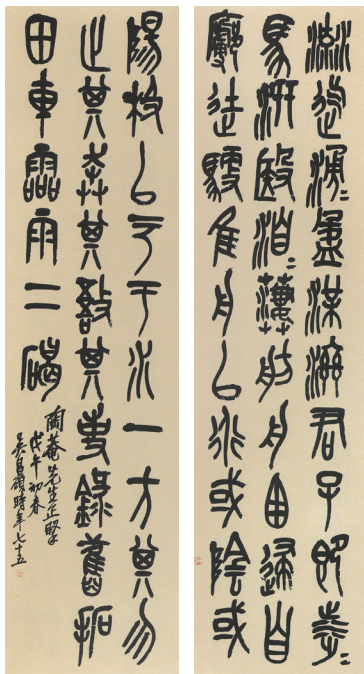 流迄湧=盈渫濟君子即涉=
馬汧殹洎=舫舟囪逮自
廓徒馭隹舟以衍或陰或
陽极以于水一方其勿
止其奔其敔其事錄舊拓
田車霝雨二碣
陶菴先生正
戊午初春
吳昌碩時年七十五